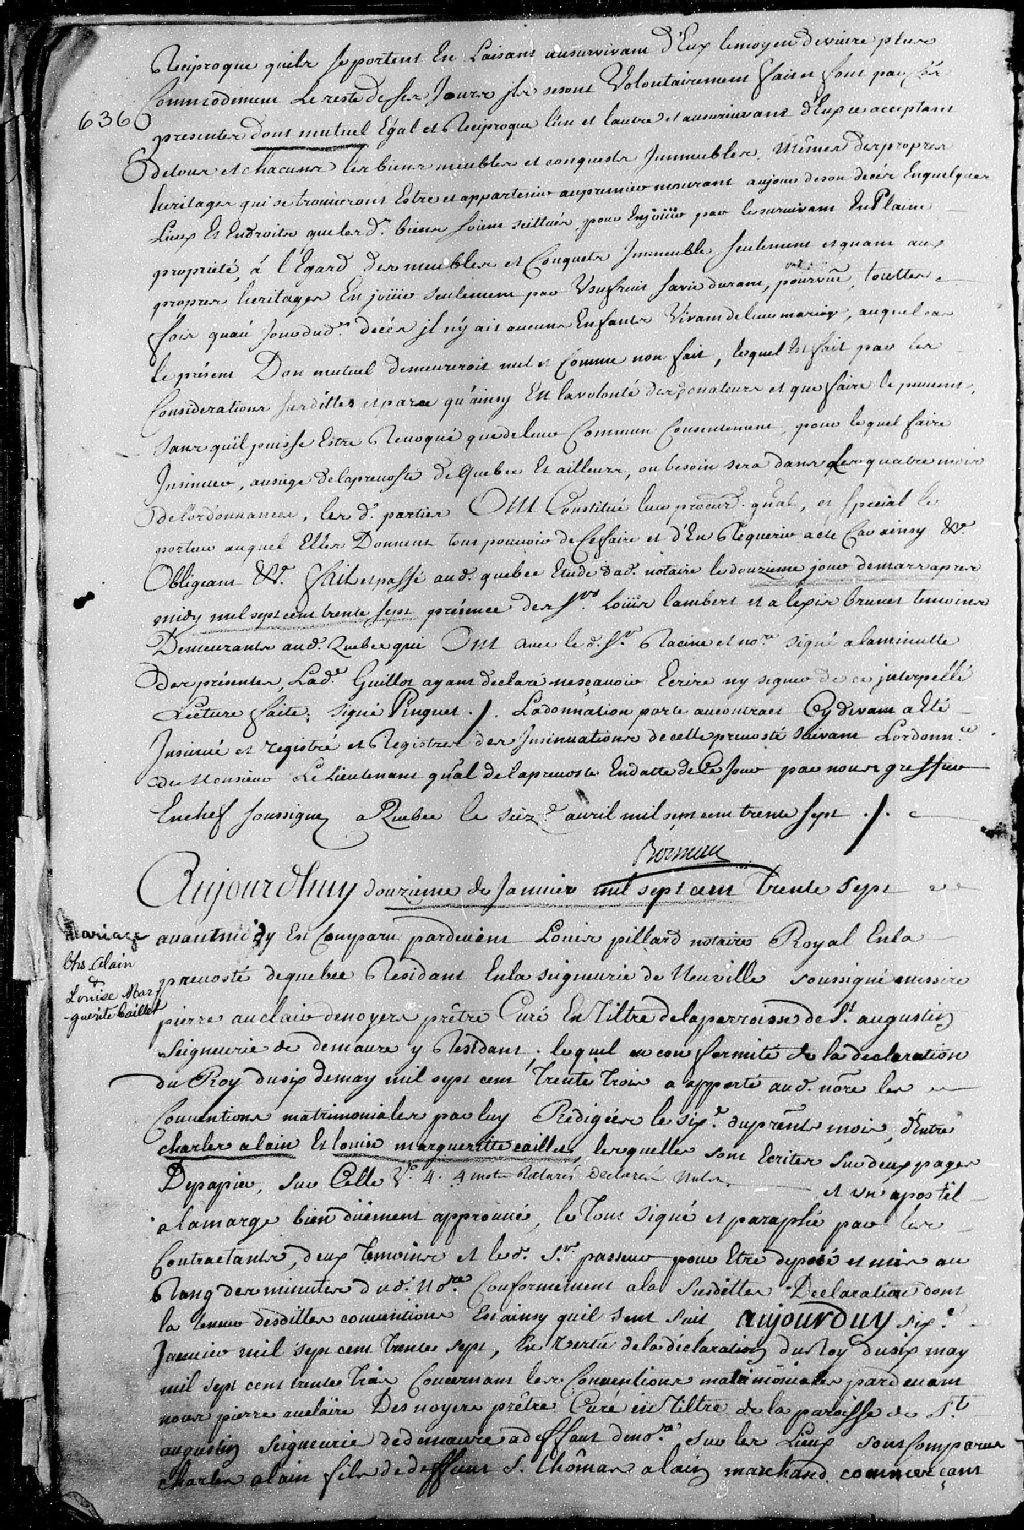 Reciproque quils se portent En Laisant ausurvivant d'Eux lemoyen devivre plus
Commodement Le reste de ses Jours jls seront Volontairement fait et font par ces
6360
presentes dont mutuel Egal et Reciproque l'un et lautre et ausurvivant d'Eux ce acceptant
detous et chacuns les biens meubles et conquests Jmmeubles, mêmes des propres
heritages qui se trouveront Estre et appartenir aupremier mourant aujour deson decés Enquelques
Lieux Et Endroits que les d. biens soient scittués, pour Enjoüir par le survivant En Plaine
propriété, à l'Egard des meubles et Conquets Jmmeuble seulement et quant aux
propres heritages En joüir seulement par Usufruit savie durant, pourvû, touttes
fois quau Jour dud. decés jl n'y ait aucuns Enfants Vivans de leur mariage, auquel cas
le présent Don mutuel demeureroit nul et Comme non fait, lequel Est fait par les
Considerations susdittes et parce qu'ainsy Est la volonté des donateurs et que faire le peuvent,
sans quil puisse Estre Revoqué que deleur Commun Consentement, pour lequel faire
Jnsinuer, au siege de la prevosté de Quebec Et ailleurs, ou besoin sera dans les quatre mois
de l'ordonnance, les d. parties Ont Constitué leur procur. gnal, et special le
porteur auquel Elles Donnent tout pouvoir de ce faire et d'En Requerir acte Car ainsy &c.
Obligeant &c. fait et passé aud. quebec Etude dud. notaire le douzieme jour demars apres
midy mil sept cent trente sept présence des srs Loüis lambert et alexis brunet temoins
Demeurants aud. Quebec qui Ont avec le d. Sr Racine et nore signé a la minutte
des présentes, Lad. Guillot ayant declaré ne sçavoir Ecrire ny signer de ce jnterpellé
Lecture faite; signé Pinguet ./. La donnation porté au contract Cy devant a Eté
Jnsinué et registré et Registres des Jnsinuations de cette prevosté suivant Lordonn.ce
de Monsieur Le Lieutenant gnal de la prevosté En datte de Ce Jour par nous greffier
En chef soussigné a Quebec le seiz.e avril mil sept cent trente sept ./.
Boisseau
Aujourdhuy douzieme de Janvier mil sept cent trente sept
mariage
Chs. Alain
&
Louise Mar-
guerite Caillet
avant midy Est Comparu pardevant Louis pillard notaire Royal En la
prevosté de quebec Resident En la seigneurie de Neuville soussigné messire
pierre auclair denoyers prêtre Curé En Tiltre de la parroisse de St augustin
seigneurie de demaure y Resident, lequel en conformité de la declaration
du Roy du six demay mil sept cent trente trois a apporté aud. nore les
Conventions matrimoniales par luy Rédigées le six.e du présent mois, d'Entre
charles alain Et louise marguerite caillet, lesquelles sont Ecrites sur deux pages
De papier, sur Celle Vo. 4. 4 mots Raturés Declarés Nuls
et un apostil
a la marge bien düement approuvée, le tout signé et paraphé par les
Contractants, deux temoins et le d. Sr. passeur pour Etre deposé et mis au
Rang des minutes dud. Nore Conformement a la susditte Declaration dont
la teneur desdittes conventions Est ainsy qu'il sent suit aujourduy six.e
Janvier mil sept cent trente sept, En vertu de la déclaration du Roy du six may
mil sept cent trente trois Concernant les Conventions matrimoniales pardevant
nous pierre auclaire Desnoyers prêtre Curé en Tiltre de la paroisse de St
augustin seigneurie de demaure a deffaut de nore sur les Lieux sont Comparus
charles alain fils de deffunt S. Thomas alain marchand commerçant